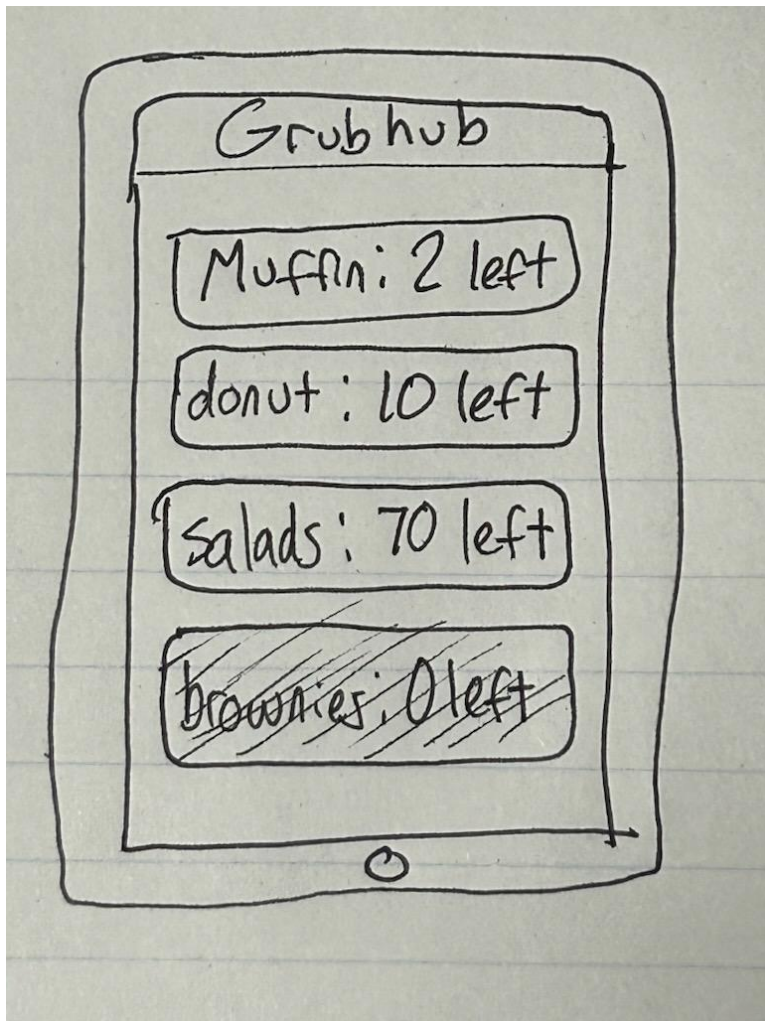 Grubhub
Muffin: 2 left
donut: 10 left
salads: 70 left
brownies: 0 left